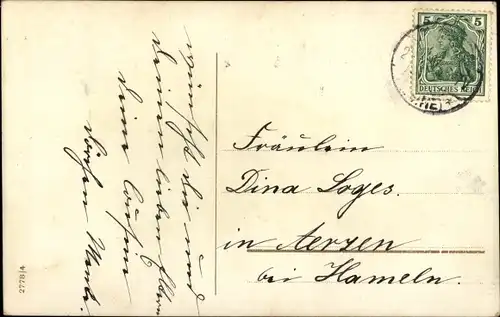 wünscht dir und
deinen lieben Eltern
deine Cousine
Dörchen
Fräulein
Dina Loges.
in Aerzen
bei Hameln.
5 5
DEUTSCHES REICH
2778/4